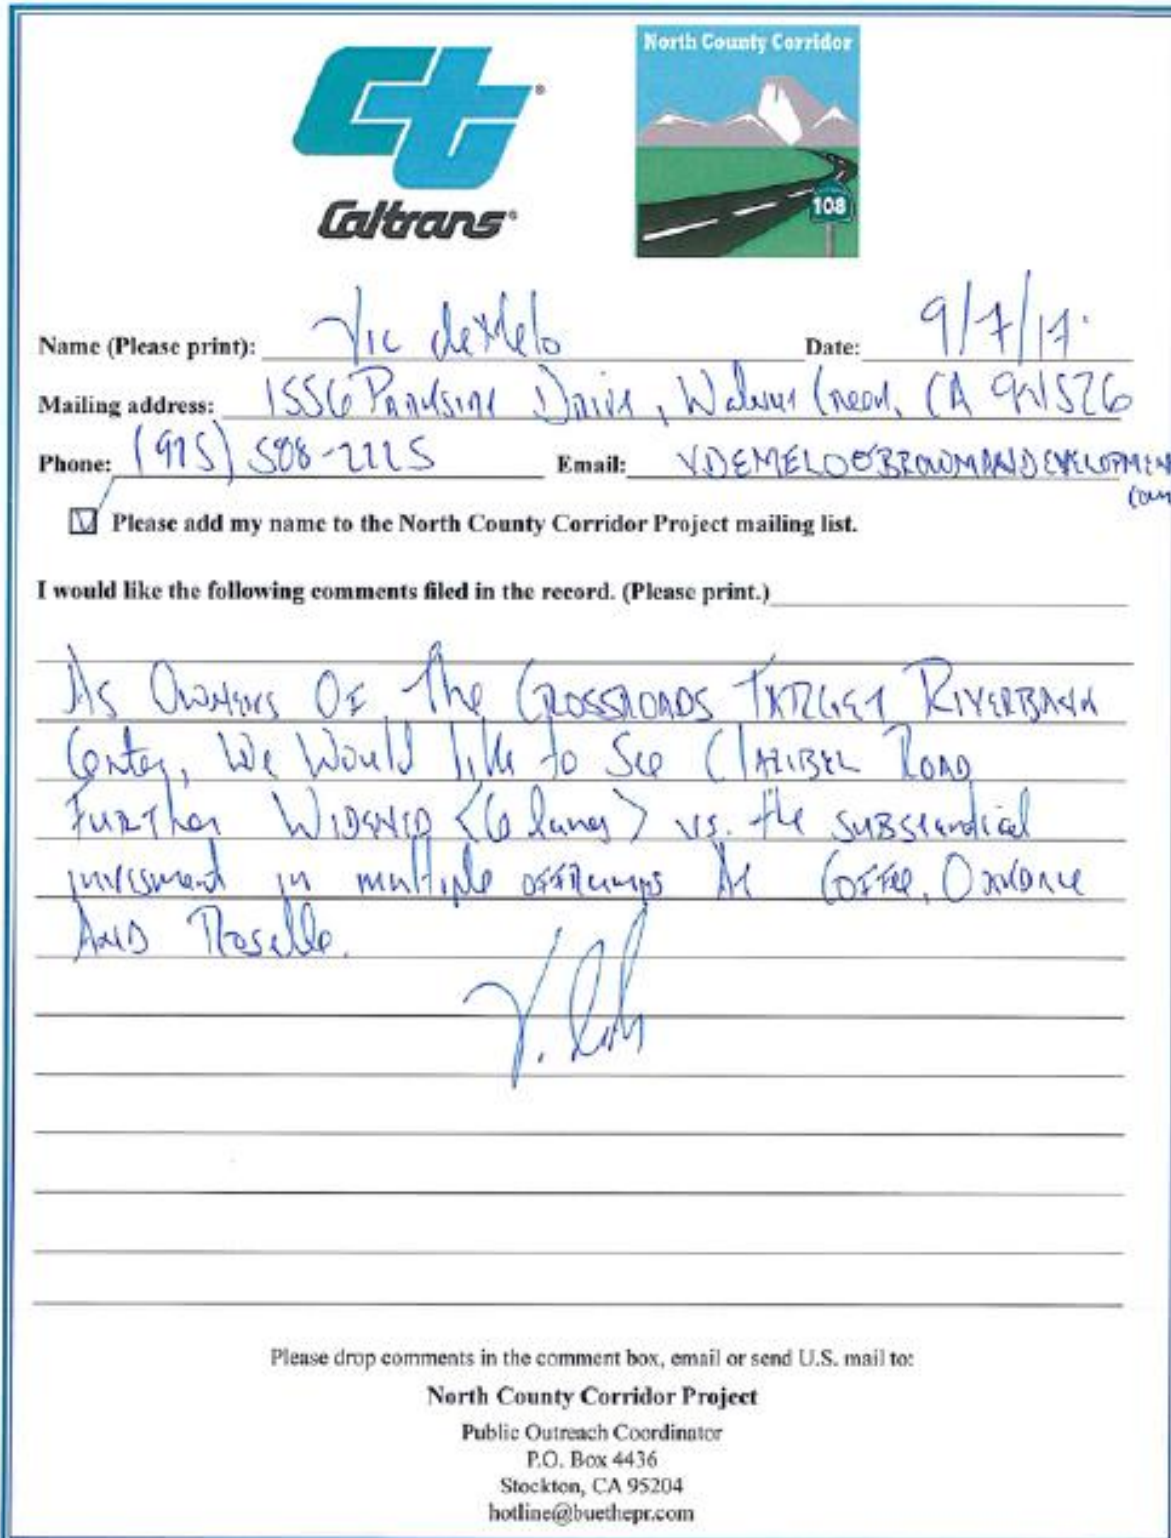 Ct
Caltrans
North County Corridor
108
Name (Please print): Vic deMelo Date: 9/7/17
Mailing address: 1556 Parkside Drive, Walnut Creek, CA
Phone: (925) Email: VDEMELO@BROWMANDEVELOPMENT
.com
Please add my name to the North County Corridor Project mailing list.
I would like the following comments filed in the record. (Please print.)
As Owners Of The CROSSROADS TARGET RIVERBANK
Center, We Would like to See CLARIBEL ROAD
FURTher WIDENED <6 lanes> vs. the SUBStantial
invesment in multiple OFFRamps At COFFEE, OAKDALE
AND Roselle.
Please drop comments in the comment box, email or send U.S. mail to:
North County Corridor Project
Public Outreach Coordinator
P.O. Box 4436
Stockton, CA 95204
hotline@buethepr.com